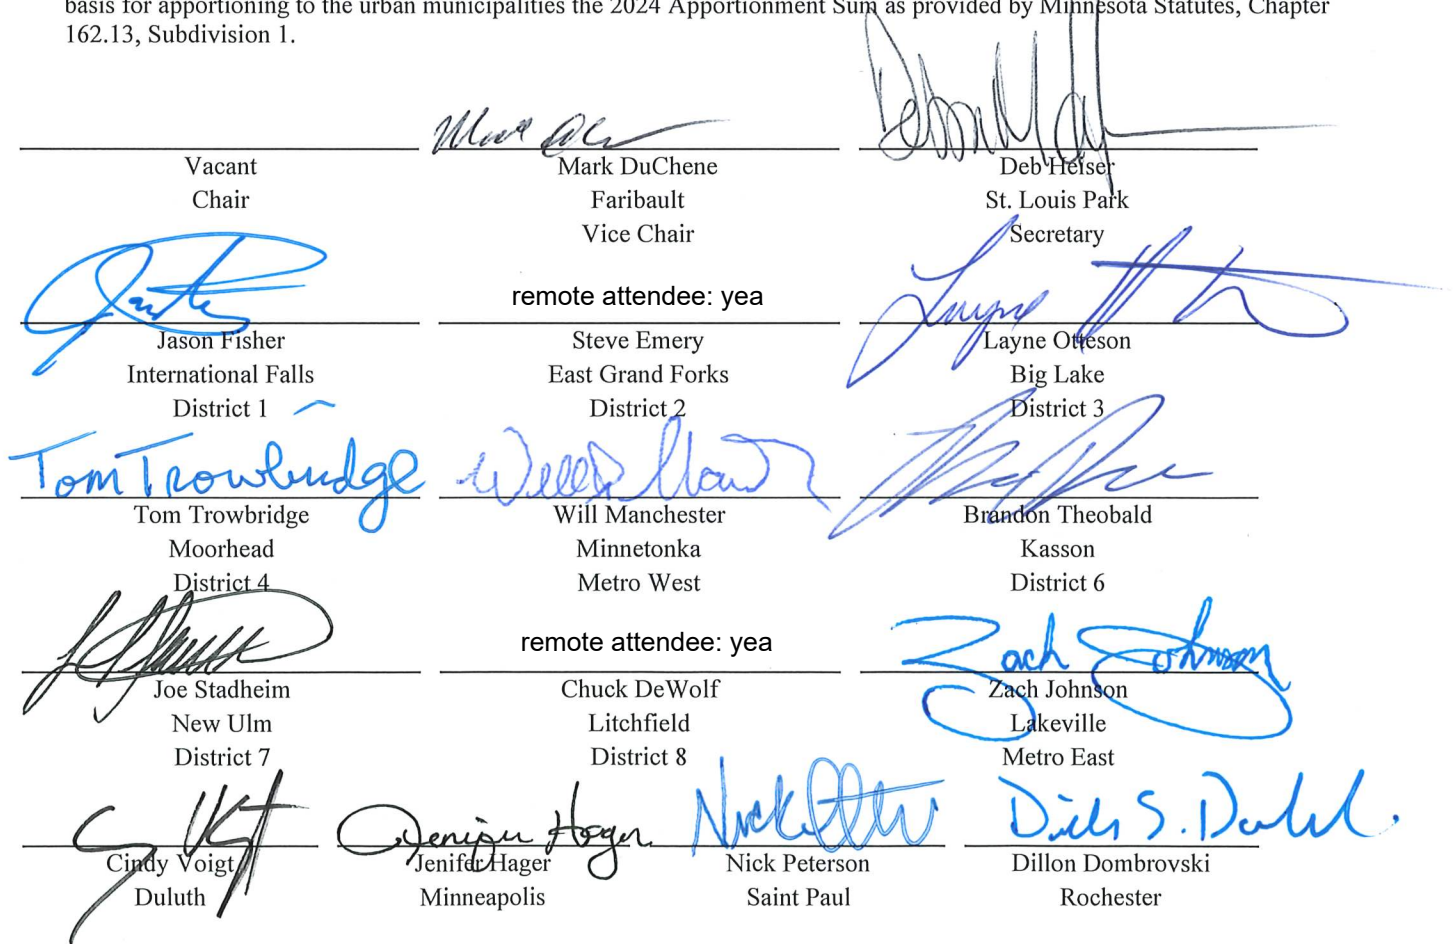 basis for apportioning to the urban municipalities the 2024 Apportionment Sum as provided by Minnesota Statutes, Chapter
162.13, Subdivision 1.
Vacant
Chair
Mark DuChene
Faribault
Vice Chair
Deb Heiser
St. Louis Park
Secretary
Jason Fisher
International Falls
District 1
remote attendee: yea
Steve Emery
East Grand Forks
District 2
Layne
Layne Otteson
Big Lake
District 3
Tom Trowbridge
Tom Trowbridge
Moorhead
District 4
Will Manchester
Minnetonka
Metro West
Brandon Theobald
Kasson
District 6
Joe Stadheim
New Ulm
District 7
remote attendee: yea
Chuck DeWolf
Litchfield
District 8
Zach Johnson
Zach Johnson
Lakeville
Metro East
Cindy Voigt
Duluth
Jenifer Hager
Jenifer Hager
Minneapolis
Nick
Nick Peterson
Saint Paul
Dillon Dombrovski
Rochester